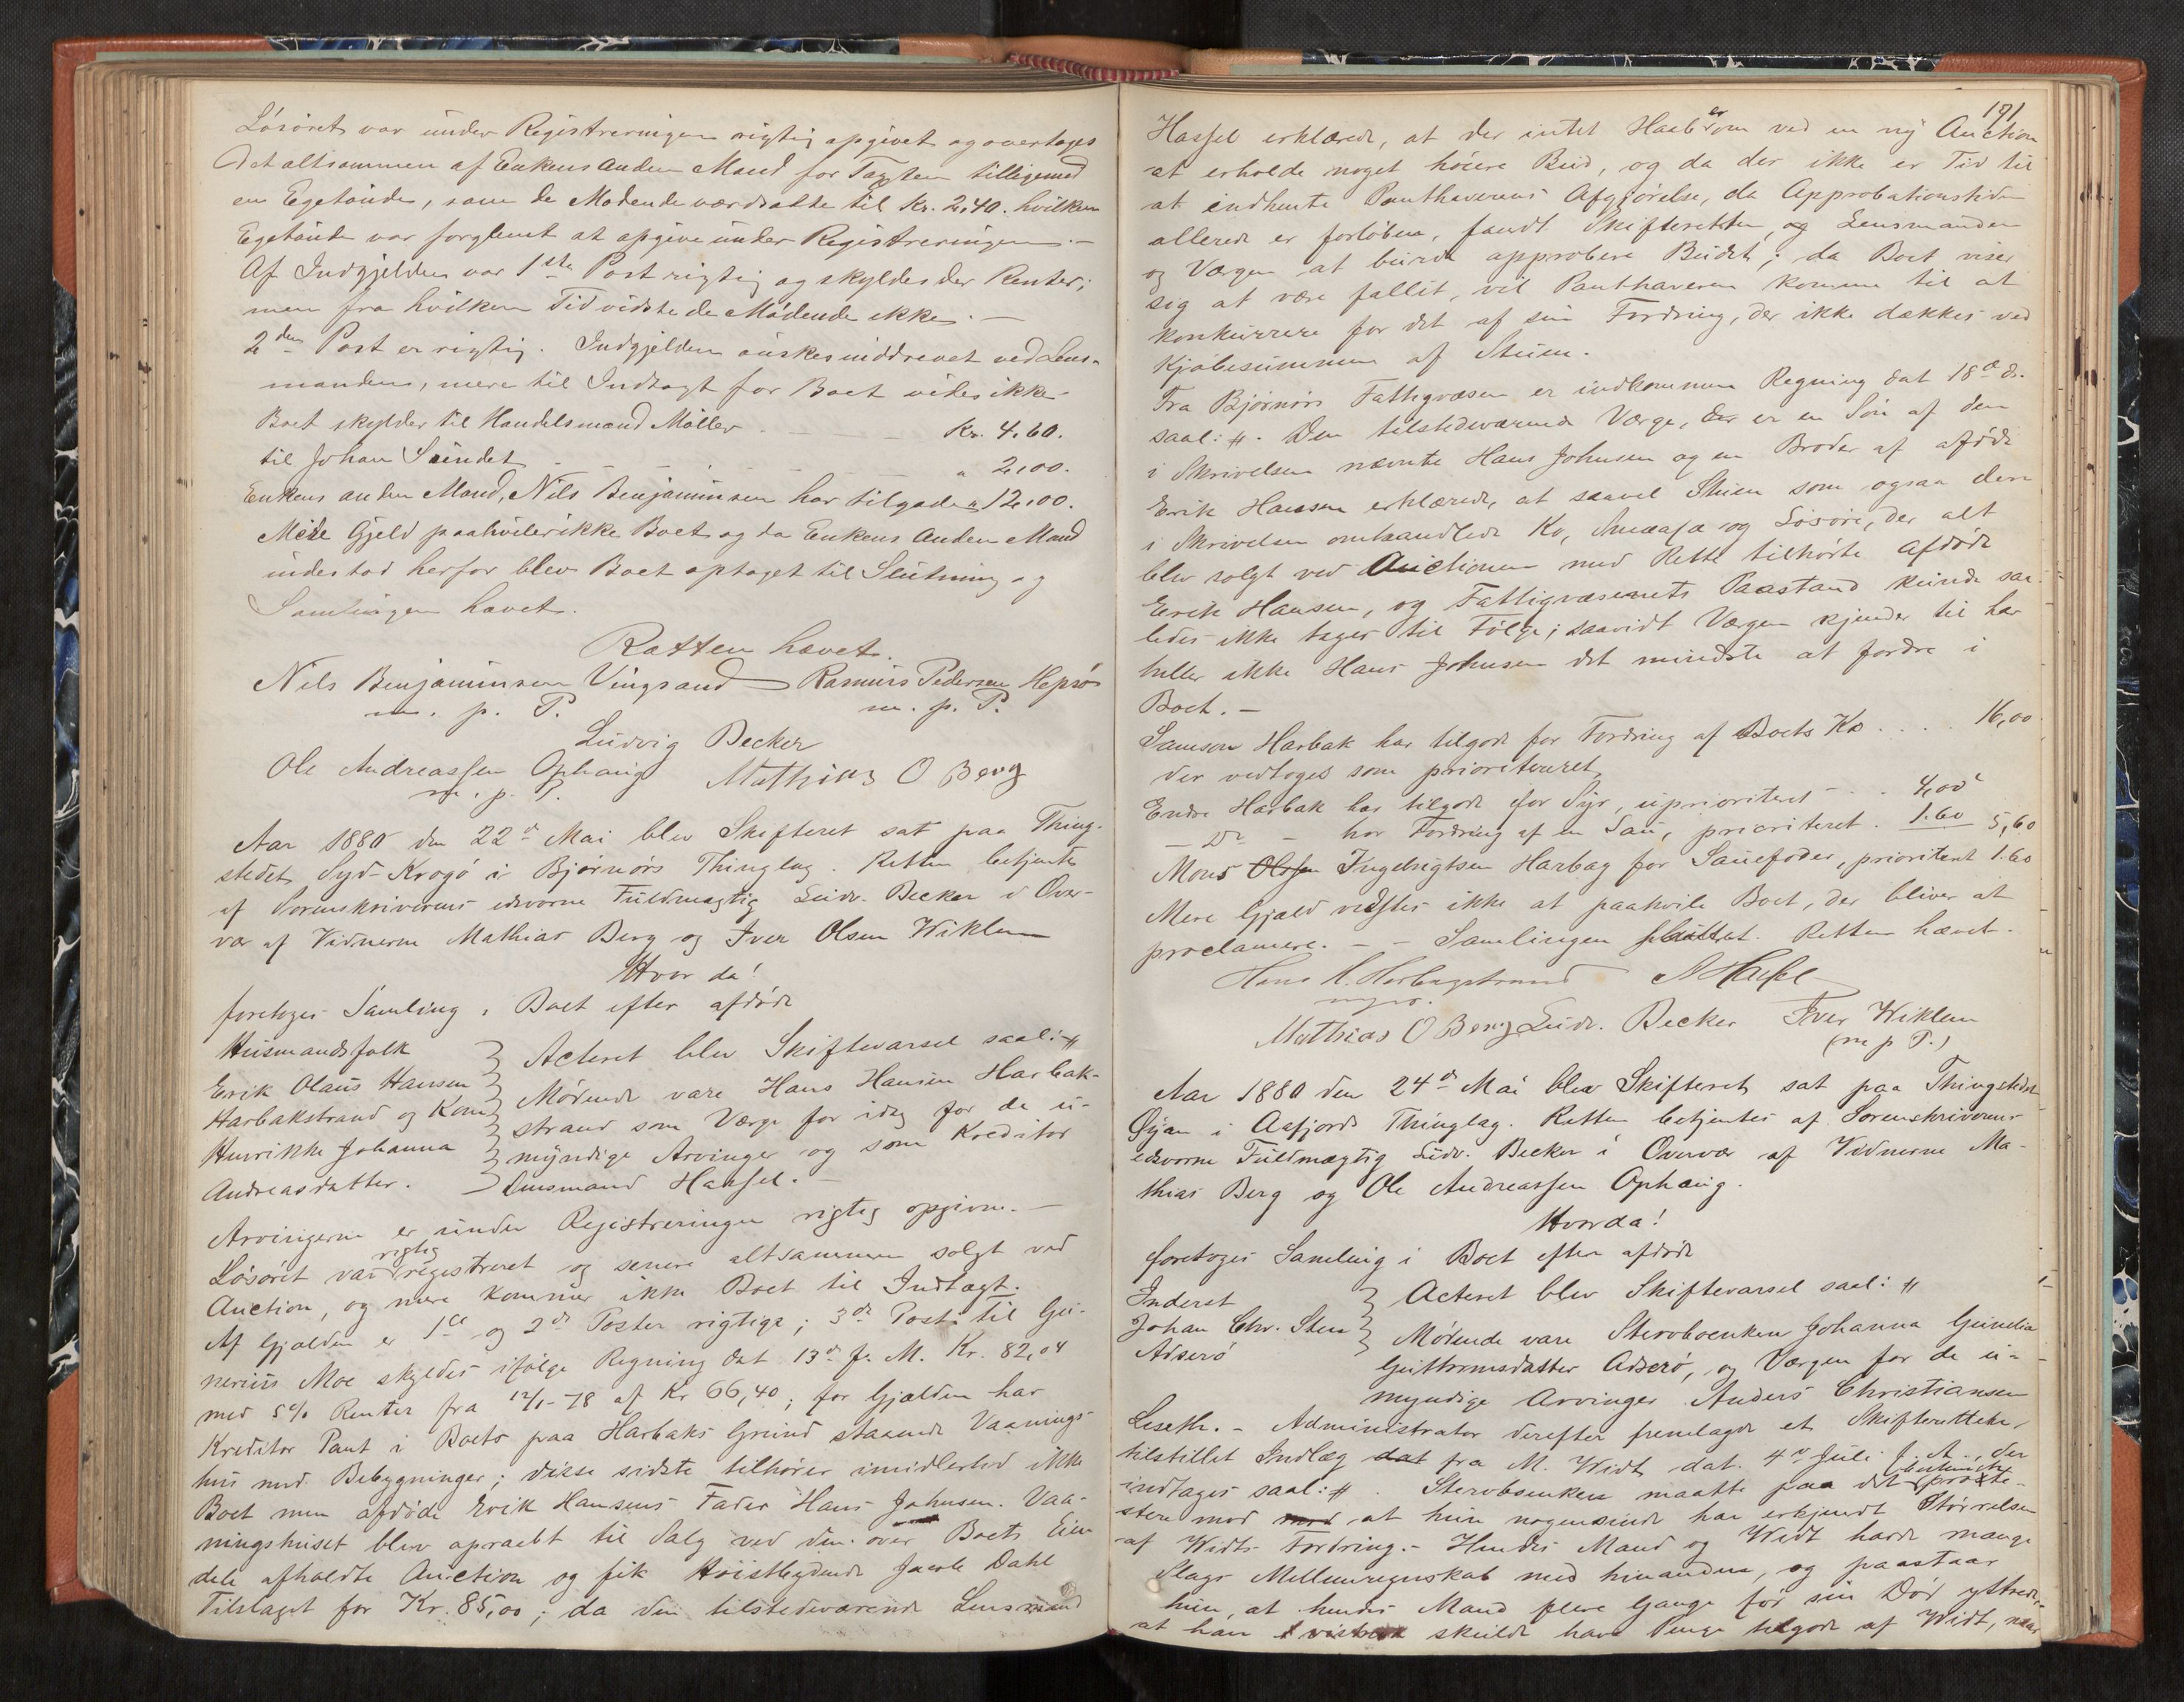 Løsøret var under Registreringen rigtig opgivet og overtages
det altsammen af Enkens anden Mand for Taxten tilligemed
en Egetønde, som de Mødende værdsatte til Kr. 2,40. hvilken
Egetønde var forglemt at opgive under Registreringen. -
Af Indgjelden var 1ste Post rigtig og skyldes der Renter;
men fra hvilken Tid vidste de Mødende ikke. -
2den Post er rigtig. Indgjelden ønskes inddrevet ved Lens-
manden, mere til Indtægt for Boet vides ikke.
Boet skylder til Handelsmand Møller - - - Kr. 4.60.
til Johan Sundet - - - " 2,00.
Enkens anden Mand, Nils Benjaminsen har tilgode " 12,00.
Mere Gjeld paahviler ikke Boet og da Enkens anden Mand
indestod herfor blev Boet optaget til Slutning og
Samlingen hævet.
Retten hævet.
Nils Benjaminsen Vingsand Rasmus Pedersen Hepsø
m. p. P. m. p. P.
Ludvig Becker
Ole Andreassen Ophaug Mathias O Berg
m. p. P.
Aar 1880 den 22de Mai blev Skifteret sat paa Thing-
stedet Syd-Krogø i Bjørnørs Thinglag. Retten betjentes
af Sorenskriverens edsvorne Fuldmægtig Ludv. Becker i Over-
vær af Vidnerne Mathias Berg og Iver Olsen Wiklem
Hvor da!
foretoges Samling i Boet efter afdøde
Husmandsfolk
Erik Olaus Hansen
Harbakstrand og Kone
Henrikke Johanna
Andreasdatter.
Acteret blev Skiftevarsel saal: #
Mødende vare Hans Hansen Harbak-
strand som Værge for idag for de u-
myndige Arvinger og som Kreditor
Lensmand Hassel. -
Arvingerne er under Registreringen rigtig opgivne. -
Løsøret var rigtig registreret og senere altsammen solgt ved
Auction, og mere kommer ikke Boet til Indtægt.
Af Gjælden er 1ste og 2de Poster rigtige; 3de Post: til Gu-
nerius Moe skyldes ifølge Regning dat 13de f. M. Kr. 82,04
med 5% Renter fra 12/1-78 af Kr 66,40; for Gjælden har
Kreditor Pant i Boets paa Harbaks Grund staaende Vaanings-
hus med Bebygninger; disse sidste tilhører imidlertid ikke
Boet men afdøde Erik Hansens Fader Hans Johnsen. Vaa-
ningshuset blev opraabt til Salg ved den over Boets Eien-
dele afholdte Auction og fik Høistbydende Jacob Dahl
Tilslaget for Kr. 85,00; da den tilstedeværende Lensmand
171
Hassel erklærede, at der intet Haab er om ved en ny Auction
at erholde noget høiere Bud, og da der ikke er Tid til
at indhente Panthaverens Afgjørelse, da Approbationstiden
allerede er forløben, fandt Skifteretten, og Lensmanden
og Værgen at burde approbere Budet; da Boet viser
sig at være fallit, vil Panthaveren komme til at
konkurrere for det af sin Fordring, der ikke dækkes ved
Kjøbesummen af Stuen.
Fra Bjørnørs Fattigvæsen er indkommen Regning dat 18de ds.
saal: #. Den tilstedeværende Værge, der er en Søn af den
i Skrivelsen nævnte Hans Johnsen og en Broder af afdøde
Erik Hansen erklærede, at saavel Stuen som ogsaa den
i Skrivelsen omhandlede Ko, Smaafæ og Løsøre, der alt
blev solgt ved Auctionen med Rette tilhørte afdøde
Erik Hansen, og Fattigvæsenets Paastand kunde saa-
ledes ikke tages til Følge; saavidt Værgen kjender til har
heller ikke Hans Johnsen det mindste at fordre i
Boet. -
Samson Harbak har tilgode for Fordring af Boets Ko . . . . 16,00
der vedtoges som prioriteret.
Endre Harbak har tilgode for Syr, uprioriteret - . . 4,00
- Do - for Fordring af en Sau, prioriteret . 1.60 5,60
Mons Olsen Ingebrigtsen Harbag for Sauefoder, prioriteret 1.60
Mere Gjæld vidstes ikke at paahvile Boet, der bliver at
proclamere. - - Samlingen sluttet. Retten hævet.
Hans H. Harbagstrand Hassel
Mathias O Berg Ludv. Becker Iver Wiklem
(m p P.)
Aar 1880 den 24de Mai blev Skifteret sat paa Thingstedet
Øyan i Aafjords Thinglag. Retten betjentes af Sorenskriverens
edsvorne Fuldmægtig Ludv. Becker i Overvær af Vidnerne Ma-
thias Berg og Ole Andreassen Ophaug.
Hvor da!
foretoges Samling i Boet efter afdøde
Inderst
Johan Chr. Sten
Adserø
Acteret blev Skiftevarsel saal: #
Mødende vare Stervboenken Johanna
Guttormsdatter Adserø, og Værgen for de u-
myndige Arvinger Anders Christiansen
Leseth. - Administrator derefter fremlagde et Skifteretten
tilstillet Indlæg dat fra M. Widt dat. 4de Juli f. A., der
indtages saal: #. Sterboenken maatte paa det bestemteste prote-
stere mod med at hun nogensinde har erkjendt Størrelsen
af Widts Fordring. - Hendes Mand og Widt havde mange
Slags Mellemregnskab med hinanden, og paastaar
hun, at hendes Mand flere Gange før sin Død yttrede,
at han skulde have Penge tilgode af Widt, naar